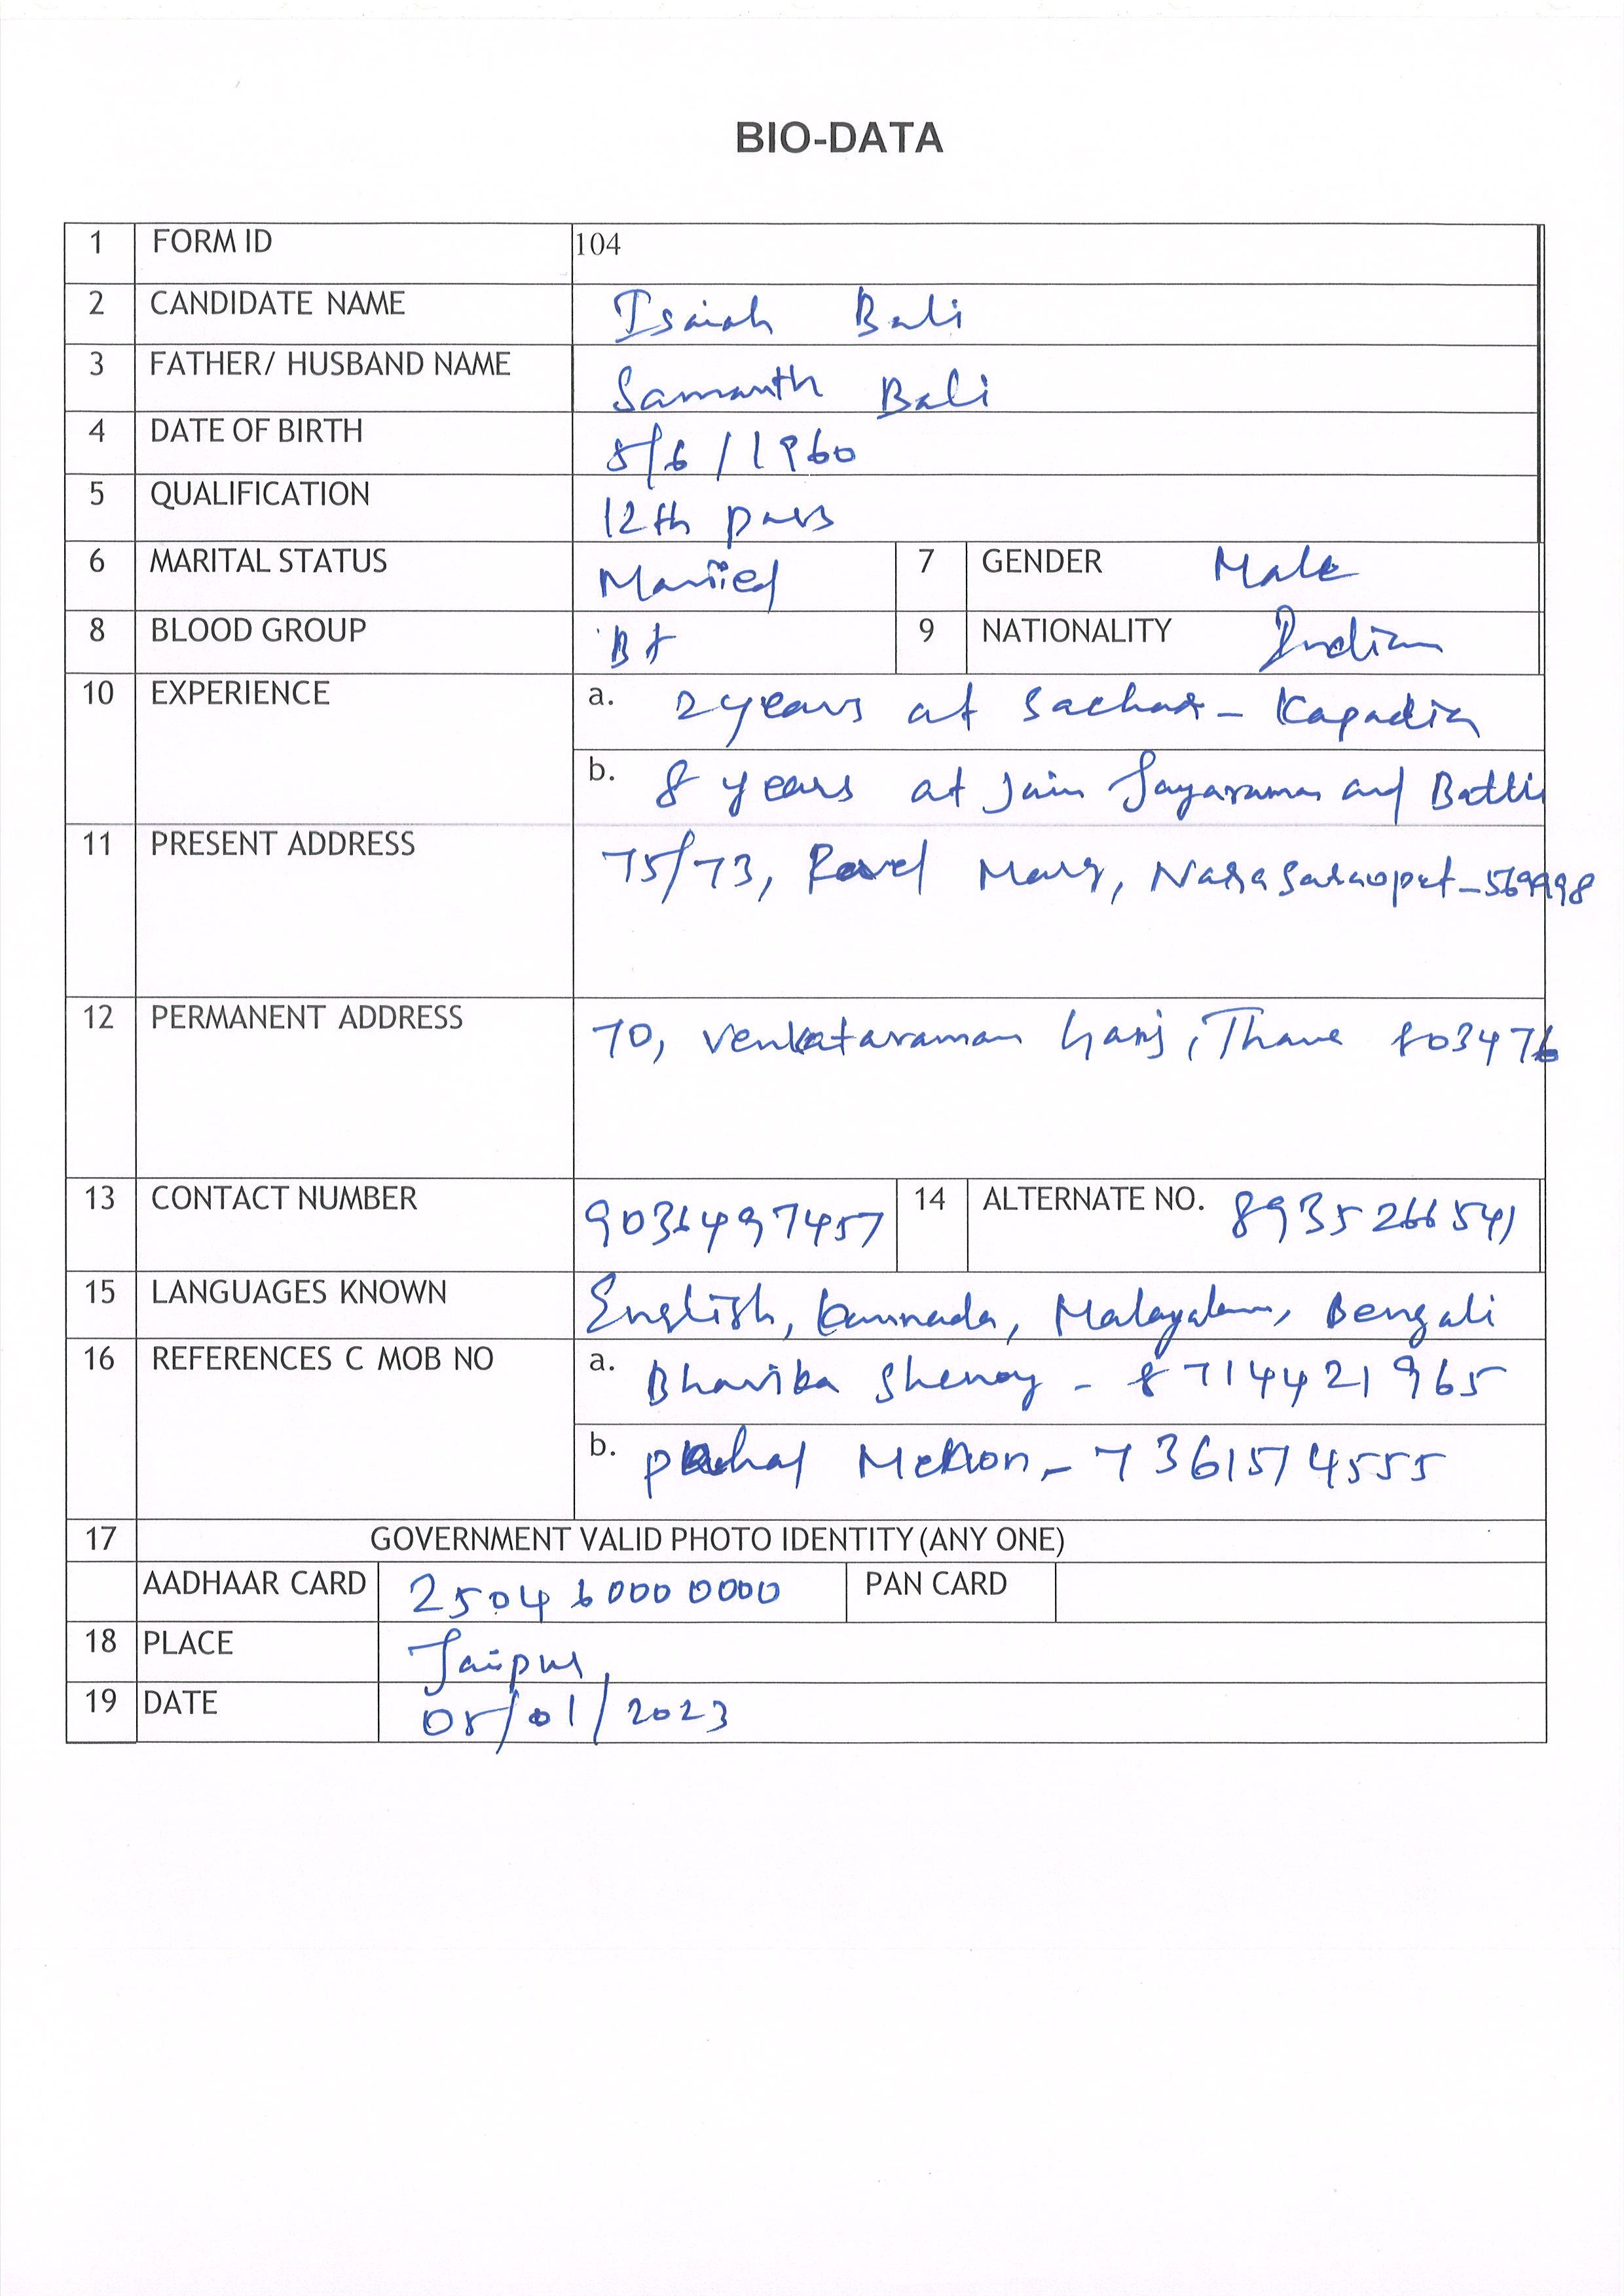 BIO-DATA
1 FORM ID 104
2 CANDIDATE NAME Isaiah Bali
3 FATHER/ HUSBAND NAME Samanth Bali
4 DATE OF BIRTH 8/6/1960
5 QUALIFICATION 12th pass
6 MARITAL STATUS Married 7 GENDER Male
8 BLOOD GROUP B+ 9 NATIONALITY Indian
10 EXPERIENCE a. 2 years at Sachar - Kapadia
b. 8 years at Jain Jayaraman and Batli
11 PRESENT ADDRESS 75/73, Marg, Narasaraopet -
12 PERMANENT ADDRESS 70, Venkataraman Ganj, Thane 803476
13 CONTACT NUMBER 14 ALTERNATE NO. 8935266541
15 LANGUAGES KNOWN English, Kannada, Malayalam, Bengali
16 REFERENCES C MOB NO a. Bhavika Shenoy - 8714421965
b. Menon - 7361574555
17 GOVERNMENT VALID PHOTO IDENTITY (ANY ONE)
AADHAAR CARD 250460000000 PAN CARD
18 PLACE Jaipur
19 DATE 08/01/2023